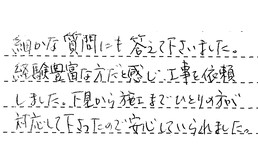 細かな質問にも答えて下さいました。
経験豊富な方だと感じ工事を依頼
しました。下見から施工までひとりの方が
対応して下さったので安心していられました。